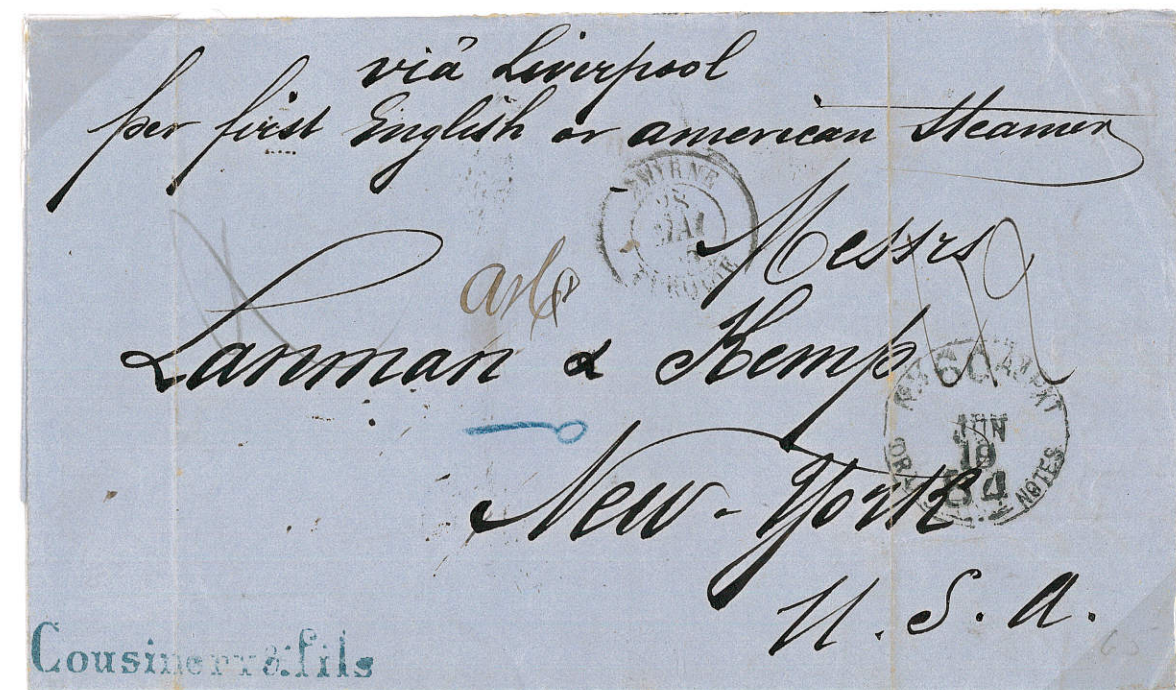 via Liverpool
per first English or american Steamer
SMYRNE
28
MAI
Messrs
Lanman & Kemp
60 AM. PKT
JUN
19
OR 84 NOTES
New-York
U. S. A.
Cousinery & fils
65